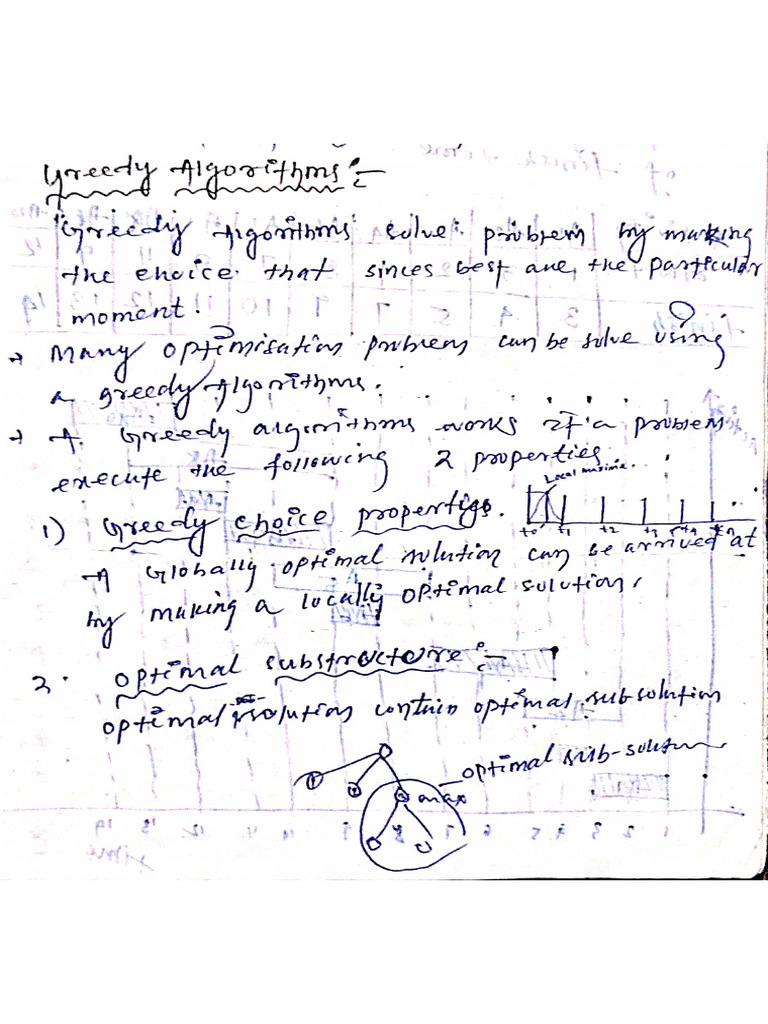 Greedy Algorithms :-
"Greedy Algorithms solve problem by making
the choice that sinces best are, the particular
moment.
→ Many optimisation problem can be solve using
a greedy Algorithms.
→ A Greedy algorithms works if a problem
execute the following 2 properties.
Local maxima...
1) Greedy choice properties.
t0 t1 t2 t3 t4
A Globally optimal solution can be arrived at
by making a locally optimal solution.
2. optimal substructure :-
optimal solution contain optimal subsolution
optimal sub-solution
max
1 2 3 4 5 6 7 8 9
time